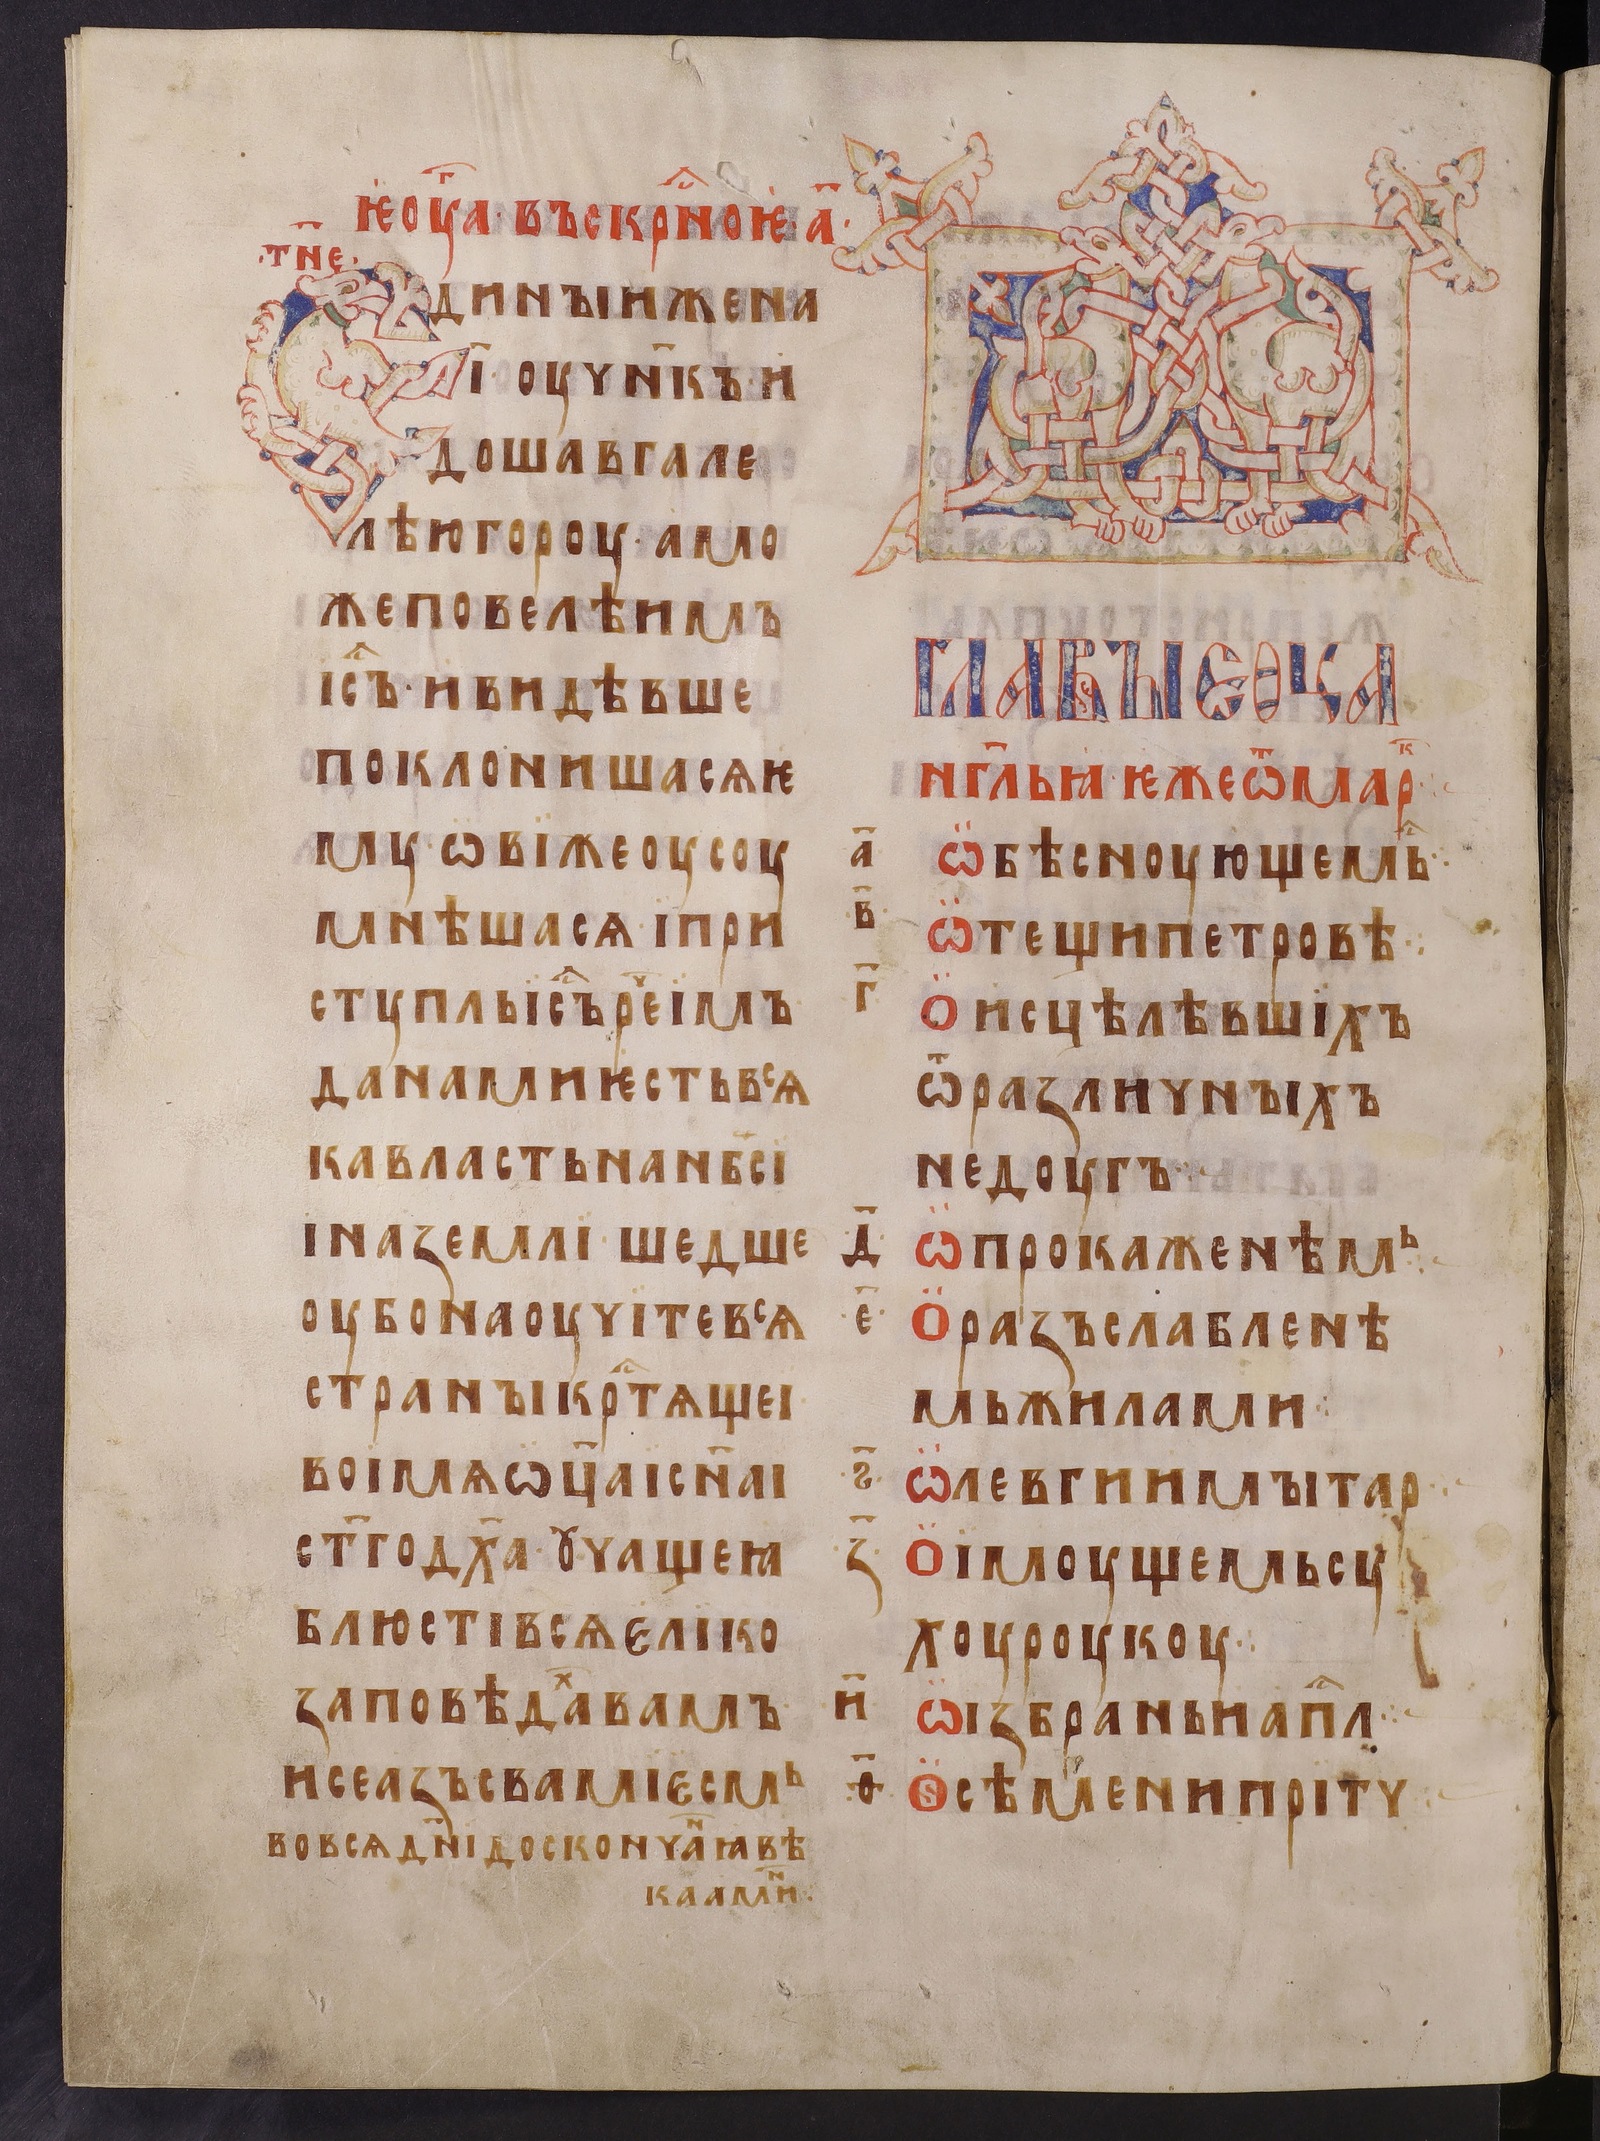 ѥоу҃а · въскр҃ноѥ · а҃ ·
· тн҃е ·
Единыи же на
і҃ · оучн҃къ · и
доша в гале
лѣю гороу · амо
же повелѣ имъ
іс҃ъ · и видѣвше
поклонишася ѥ
мꙋ · ѡви же оусоу
мнѣшася · їпри
стꙋпль їс҃ъ ре҃ імъ
дана ми ѥсть вся
ка власть на нб҃сї
і на ꙁемлї · шедше
оубо наоучїте вся
страны кр҃тящеі
во імя ѡц҃а ї сн҃а і
ст҃го дх҃а · ꙋчаще ꙗ
блюсті вся єлїко
ꙁаповѣдахъ вамъ ·
и се аꙁъ с вамї єсмь
во вся дн҃і до сконча҃ꙗ вѣ
ка ам҃и :
главы еоуа
нг҃льꙗ · ѥже ѿ мар҃к
а҃ ѡ бѣсноующемь
в҃ ѡ тещи петровѣ
г҃ о исцѣлѣвшіхъ
ѿ раꙁличныхъ
недоугъ
д҃ ѡ прокаженѣмь
е҃ о раꙁъслабленѣ
мь жилами
ѕ҃ ѡ левгии мытар
ꙁ҃ о їмоущемь сꙋ
хоу роукоу
и҃ ѡ іꙁбраньи ап҃л
ѳ҃ о сѣмени прітч